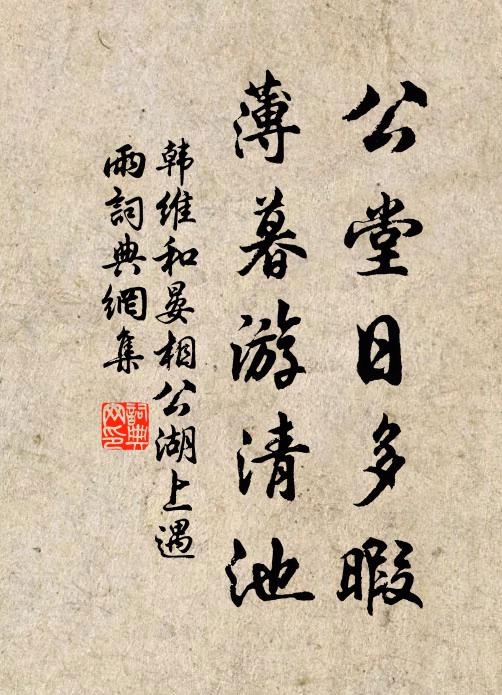 公堂日多暇
薄暮游清池
韩维和晏相公湖上遇
雨詞典網集
詞典
网印